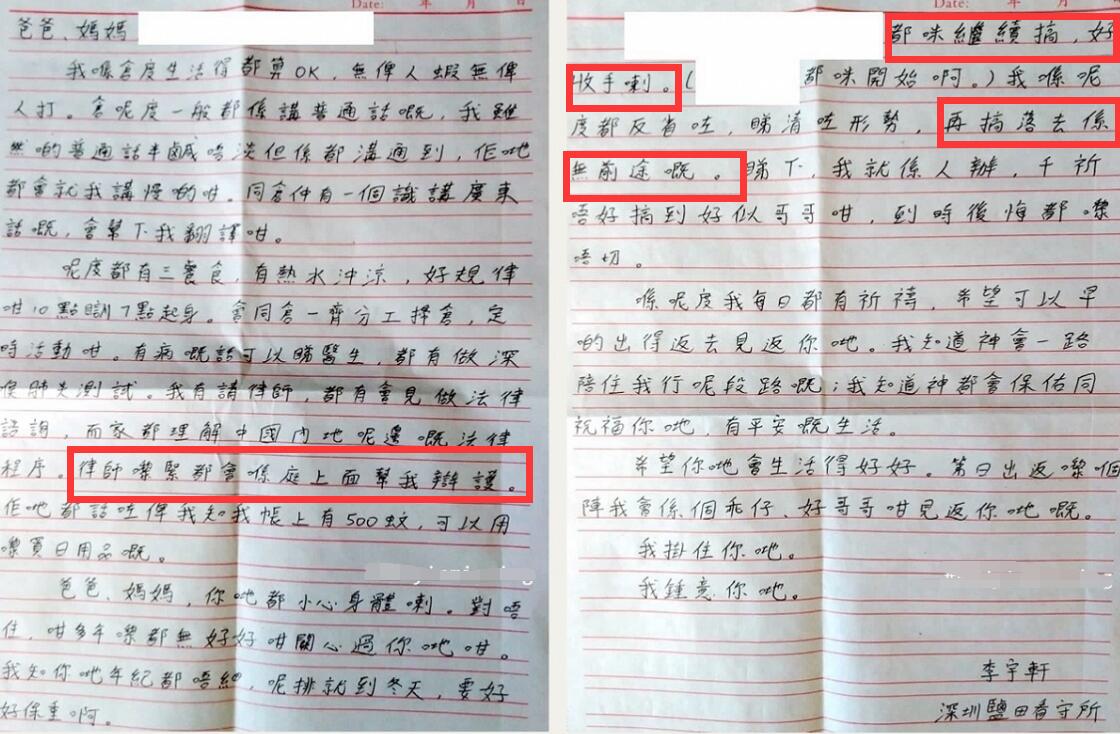 Date: 年 月 日
爸爸、媽媽
我喺倉度生活得都算OK，無俾人蝦無俾
人打。倉呢度一般都係講普通話嘅，我雖
然啲普通話半鹹唔淡但係都溝通到，佢哋
都會就我講慢啲咁。同倉仲有一個識講廣東
話嘅，會幫下我翻譯咁。
呢度都有三餐食，有熱水沖涼，好規律
咁10點瞓7點起身。會同倉一齊分工擇倉，定
時活動咁。有病嘅話可以睇醫生，都有做深
喉肺炎測試。我有請律師，都有會見做法律
諮詢，而家都理解中國內地呢邊嘅法律
程序。律師嚟緊都會係庭上面幫我辯護。
佢哋都話咗俾我知我帳上有500蚊，可以用
嚟買日用品嘅。
爸爸、媽媽，你哋都小心身體喇。對唔
住，咁多年嚟都無好好咁關心過你哋咁。
我知你哋年紀都唔細，呢排就到冬天，要好
好保重啊。
Date: 年 月 日
都咪繼續搞，好
收手喇。（都咪開始啊。）我喺呢
度都反省咗，睇清咗形勢，再搞落去係
無前途嘅。睇下，我就係人辦，千祈
唔好搞到好似哥哥咁，到時後悔都嚟
唔切。
喺呢度我每日都有祈禱，希望可以早
啲出得返去見返你哋。我知道神會一路
陪住我行呢段路嘅；我知道神都會保佑同
祝福你哋 有平安嘅生活。
希望你哋會生活得好好。第日出返嚟個
陣我會係個乖仔、好哥哥咁見返你哋嘅。
我掛住你哋。
我鍾意你哋。
李宇軒
深圳鹽田看守所